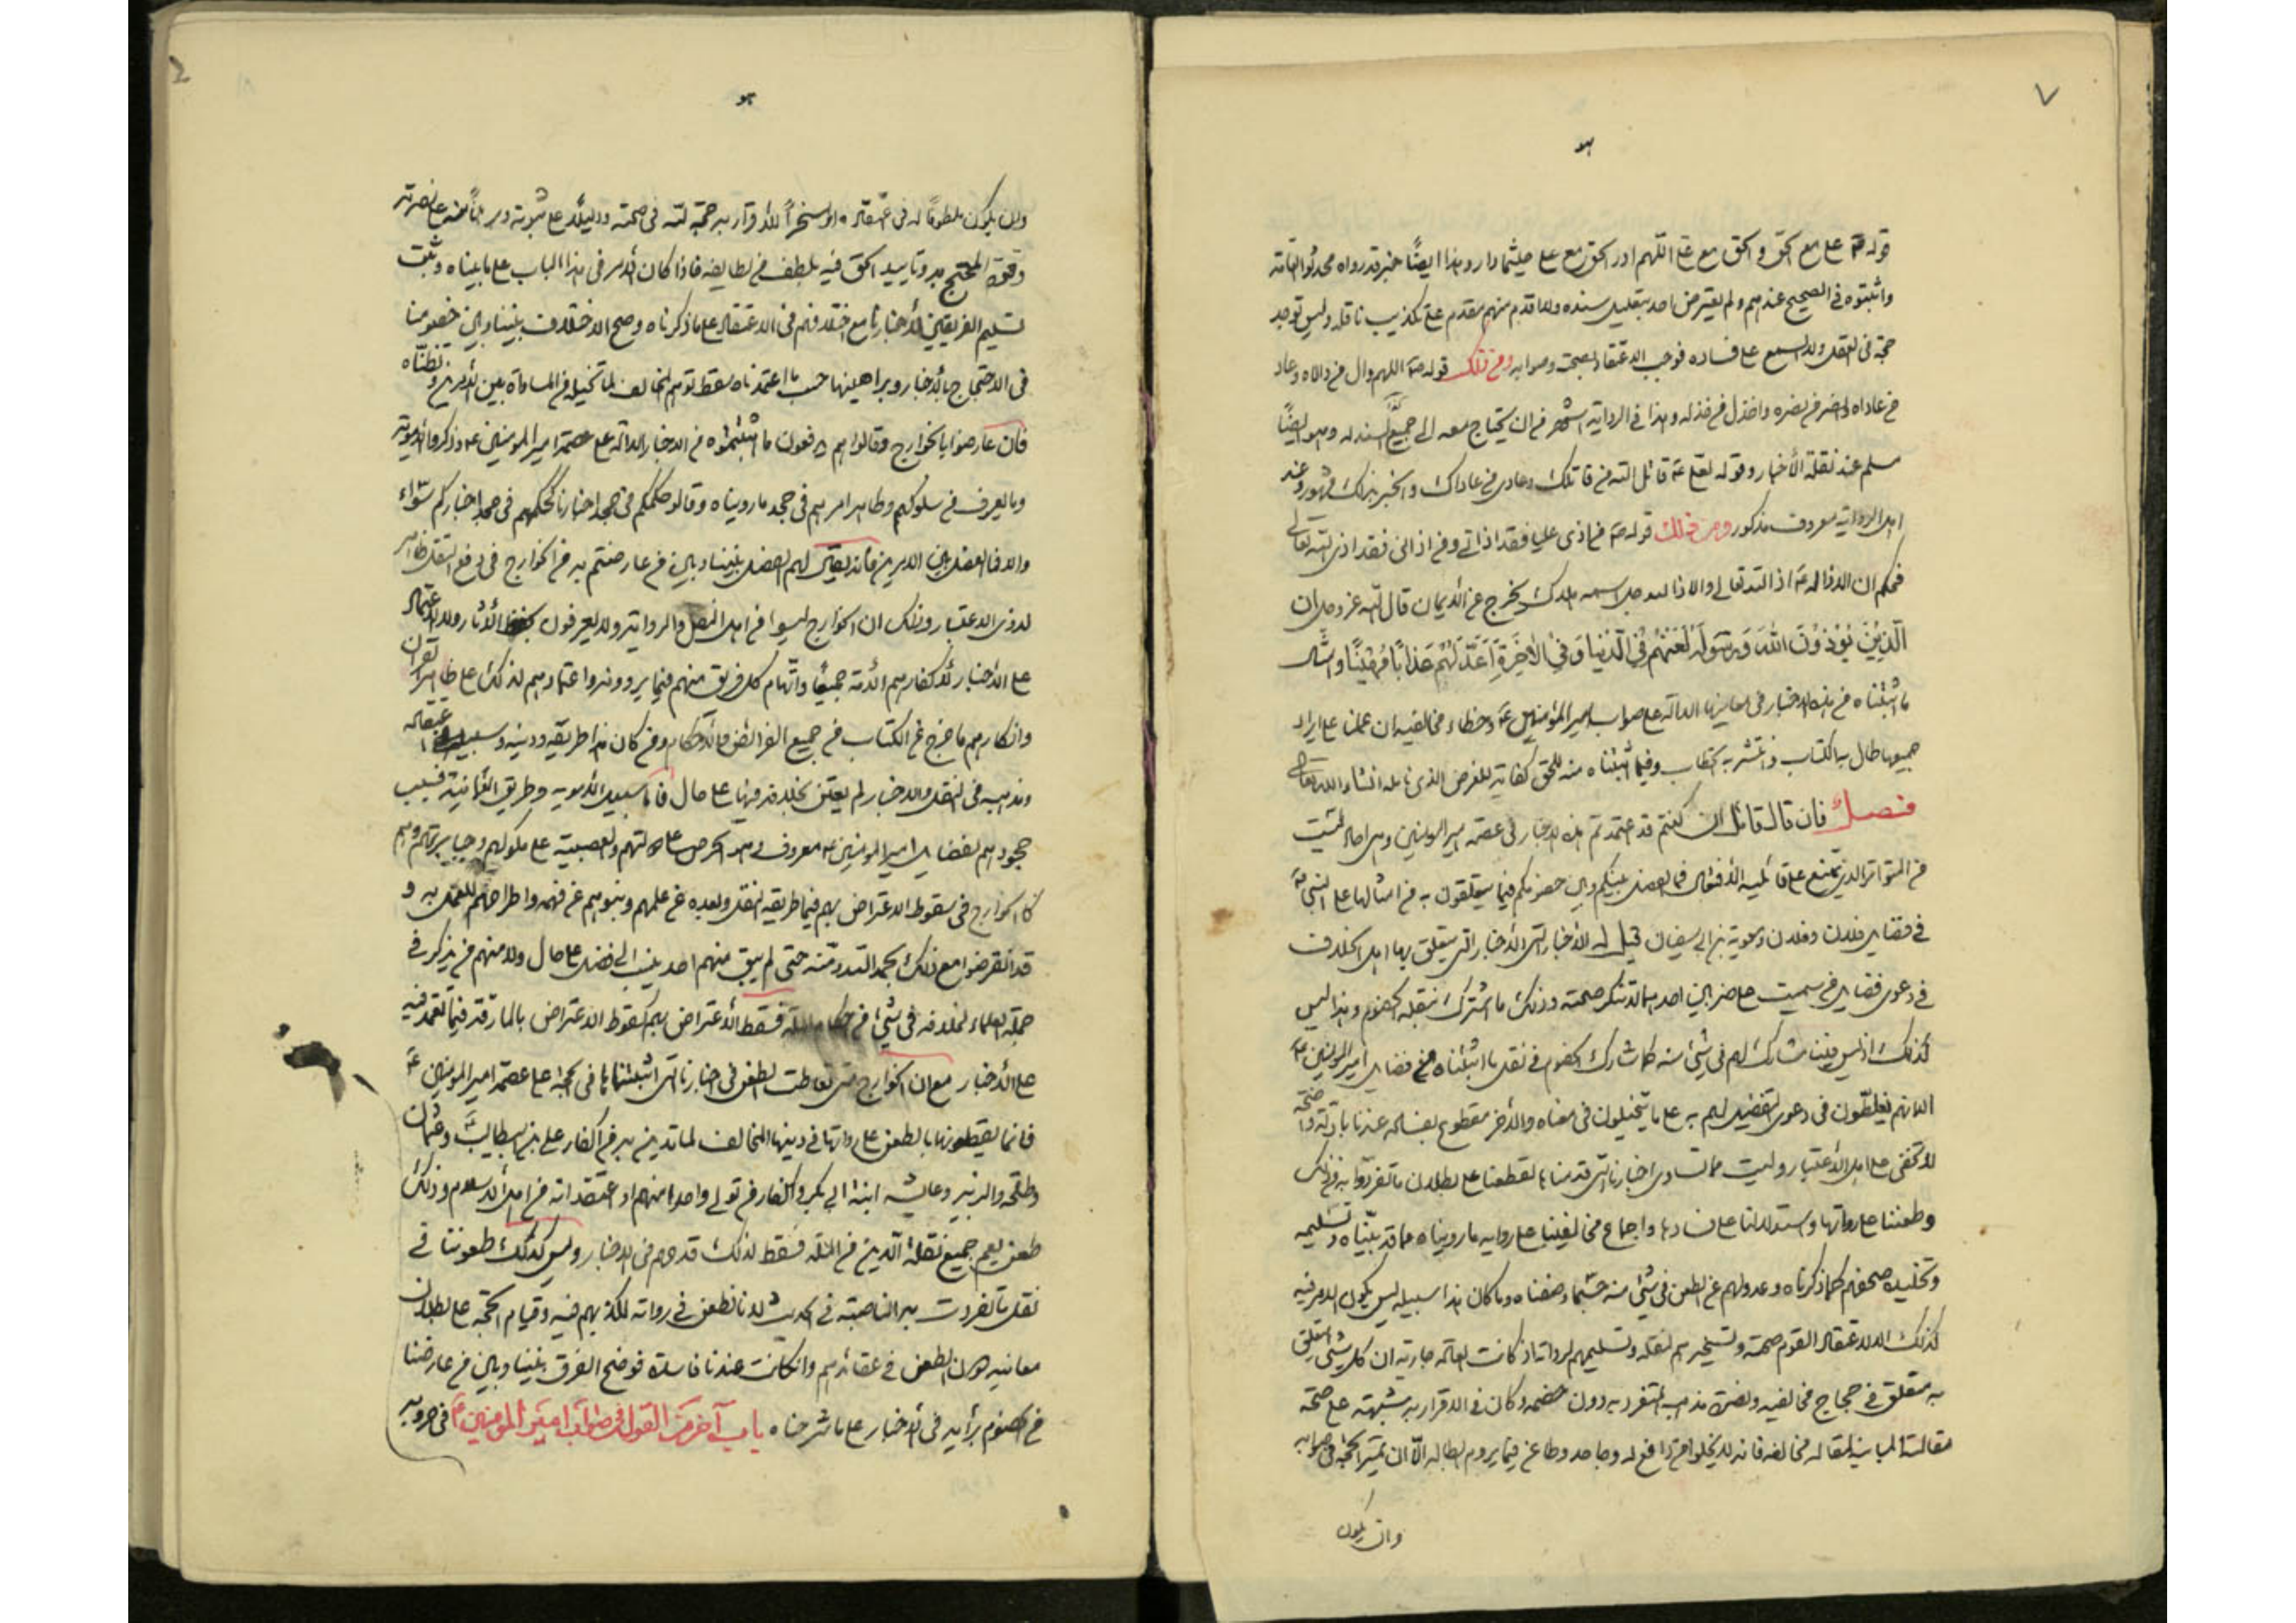 ٧
هو
قوله ص علي مع الحق والحق مع علي اللهم ادر الحق مع علي حيثما دار وهذا ايضًا خبر قد رواه محدثوا العامة
واثبتوه في الصحيح عندهم ولم يعترض احد بتعليل سنده ولا اقدم منهم مقدم على تكذيب ناقله وليس توجد
حجة في العقل ولا السمع على فساده فوجب الاعتقاد بصحته وصوابه ومن ذلك قوله ص اللهم وال من والاه وعاد
من عاداه وانصر من نصره واخذل من خذله وهذا في الرواية اشهر من ان يحتاج معه الى جمع السند له وهو ايضًا
مسلم عند نقلة الأخبار وقوله لعلي ع قاتل الله من قاتلك وعادى من عاداك والخبر بذلك مشهور وعند
اهل الرواية معروف مذكور ومن ذلك قوله ص من اذى عليا فقد اذاني ومن اذاني فقد اذى الله تعالى
فحكم ان الاذى له ع اذى الله تعالى والاذى لله جل اسمه هلاك يخرج عن الايمان قال الله عز وجل ان
الَّذِينَ يُؤْذُونَ اللهَ وَرَسُولَهُ لَعَنَهُم فِي الدُّنْيَا وَفِي الْآخِرَةِ اَعَدَّ لَهُمْ عَذَابًا مُهِينًا وامثال
ما اثبتناه من هذه الاخبار في معانيها الدالة على صواب امير المؤمنين ع وخطاء مخالفيه ان عملنا على ايراد
جميعها طال به الكتاب وانتشر به الخطاب وفيما اثبتناه منه للحق كفاية للغرض الذي نامله انشاء الله تعالى
فصل فان قال قائل ان كنتم قد اعتمدتم هذه الاخبار في عصمة امير المومنين وهي احاد ليست
من المتواتر الذي يمتنع على قائليه الافتعال فما الفصل بينكم وبين خصومكم فيما يتعلقون به من امثالها على النبي ص
في فضايل فلان وفلان ومعوية بن ابي سفيان قيل له الأخبار التي يتعلق بها اهل الخلاف
في دعوى فضايل من سميت على ضربين احدهما لا تنكر صحته وذلك ما اشترك بنقله الخصوم وهذا ليس
كذلك اذ ليس بيننا مشارك لهم في شئ منه كما شارك الخصوم في نقل ما اثبتناه من فضايل امير المومنين ع
الا انهم يغلطون في دعوى التفضيل لهم به على ما يتخيلون في معناه والأخر مقطوع بفساده عندنا بادلة واضحة
لا تخفى على اهل الاعتبار وليست مما تساوى اخبارنا التي قدمناها لقطعنا على بطلان ما تفردوا به من ذلك
وطعننا على رواتها واستدلالنا على فسادها واجماع مخالفينا على رواية ما رويناه مما قد بيّناه وتسليمه
وتخليده صحفهم كما ذكرناه وعدولهم عن الطعن في شئ منه حسبما وصفناه وما كان هذا سبيله ليس يكون الامر فيه
كذلك الا لاعتقاد القوم صحته وتسخيرهم لنقله وتسليمهم لرواته اذ كانت العادة جارية ان كل شئ يتعلق
به متعلق في حجاج مخالفيه ونصرة مذهبه المتفرد به دون خصمه وكان في الاقرار به شبهة على صحة
مقالته المباينة لمقاله مخالفه فانه لا يخلوا من دافع له وجاحد وطاعن فيما يروم ابطاله الّا ان تميز الحجة في صوابه
وان يكون
هو
وان يكون ملطوفًا له في اعتقاده او مسخرًا للاقرار به حجة لله في صحته ودليلا على ثبوته وبرهانًا منه على نصرته
وقوة المحتج به وتاييد الحق فيه بلطف من لطايفه فاذا كان الامر في هذا الباب على ما بيناه وثبت
تسليم الفريقين لأخبارنا مع اختلافهم في الاعتقاد على ما ذكرناه وصح الاختلاف بيننا وبين خصومنا
في الاحتجاج بالأخبار وبراهينها حسب ما اعتمدناه سقط توهم المخالف لما تخيله من المساواة بين الامرين وظنّاه
فان عارضوا بالخوارج وقالوا هم يدفعون ما اثبتموه من الاخبار الدالة على عصمة امير المومنين ع وذكروا الاموية
وما يعرف من سلوكهم وظاهر امرهم في جحد ما رويناه وقالوا حكمكم في جحد اخبارنا كحكمهم في جحد اخباركم سواء
والا فما الفصل بين الامرين فانه يقال لهم الفصل بيننا وبين من عارضتم به من الخوارج في دفع النقل ظاهر
لذوى الاعتبار وذلك ان الخوارج ليسوا من اهل النقل والرواية ولا يعرفون بحفظ الآثار ولا الاعتماد
على الأخبار لاكفارهم الأمة جميعًا واتهام كل فريق منهم فيما يروونه واعتمادهم لذلك على ظاهر القرآن
وانكارهم ما خرج عن الكتاب من جميع الفرائض والأحكام ومن كان هذا طريقه ودينه وسبيله اعتقاده
ومذهبه في النقل والاخبار لم يعتن بخلافه فيها على حال فاما سبيل الأموية وطريق العثمانية فسبب
جحودهم لفضايل امير المومنين ع معروف وهو الحرص على دولتهم والعصبية على ملوكهم وجبابرتهم وهم
كالخوارج في سقوط الاعتراض بهم فيما طريقه النقل وبعده عن علمهم ونبوهم عن فهمه واطراحهم للعمل به و
قد انقرضوا مع ذلك بحمد الله ومنه حتى لم يبق منهم احد ينسب الى فضل على حال ولا منهم من يذكر في
جملة العلماء لخلافه في شئ من احكام الملة فسقط الأعتراض بهم كسقوط الاعتراض بالمارقة فيما تعمد فيه
على الأخبار مع ان الخوارج متى تعاطت الطعن في اخبارنا التي اثبتناها في الحجة على عصمة امير المومنين ع
فانما يقطعونها بالطعن على رواتها في دينها المخالف لما تدين به من اكفار علي بن ابيطالب ع وعثمان
وطلحة والزبير وعايشه ابنة ابي بكر واكفار من تولى واحدا منهم او اعتقد انه من اهل الاسلام وذلك
طعن يعم جميع نقلة الدين من الملة فسقط لذلك قدحهم في الاخبار وليس كذلك طعوننا في
نقل ما تفردت به الناصبة في الحديث لانا نطعن في رواته لكذبهم فيه وقيام الحجة على بطلان
معانيه دون الطعن في عقائدهم وانكانت عندنا فاسدة فوضح الفرق بيننا وبين من عارضنا
من الخصوم برأيه في الأخبار على ما شرحناه باب آخر من القول في صواب امير المؤمنين ع في حروبه